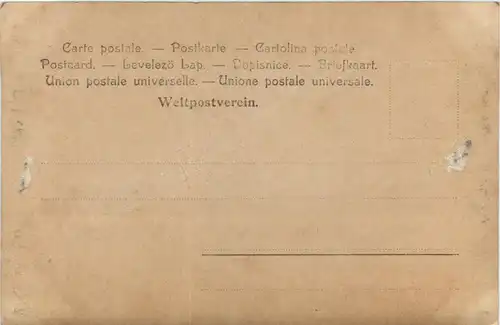 Carte postale. — Postkarte — Cartolina postale
Postcard. — Levelező Lap. — Dopisnice. — Briefkaart.
Union postale universelle. — Unione postale universale.
Weltpostverein.